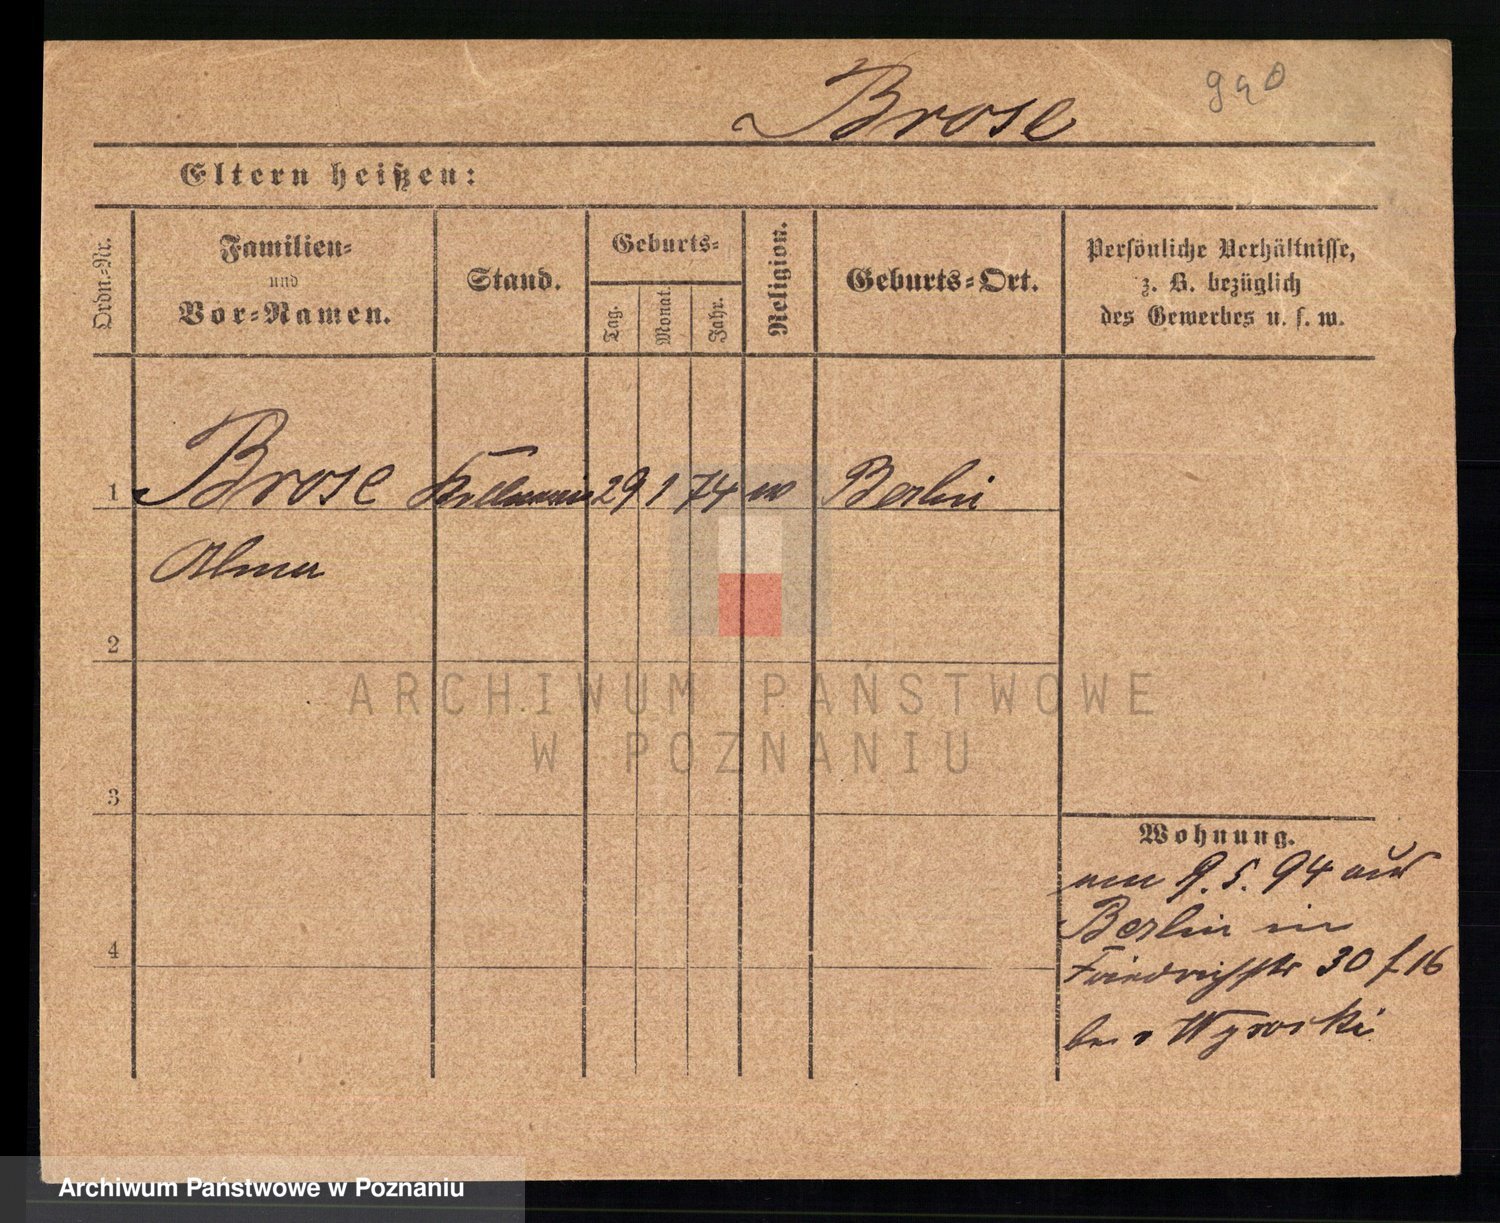 Brose
940
Eltern heißen:
Ordn.-Nr.
Familien-
und
Vor-Namen.
Stand.
Geburts-
Tag.
Monat.
Jahr.
Religion.
Geburts-Ort.
Persönliche Verhältnisse,
z. B. bezüglich
des Gewerbes u. s. w.
1 Brose Kellnerin 29 1 74 ev Berlin
Alma
2
3
4
Wohnung.
am 9. 5. 94 aus
Berlin in
Friedrichstr 30 f 16
bei v Wysocki
ARCHIWUM PAŃSTWOWE
W POZNANIU
Archiwum Państwowe w Poznaniu